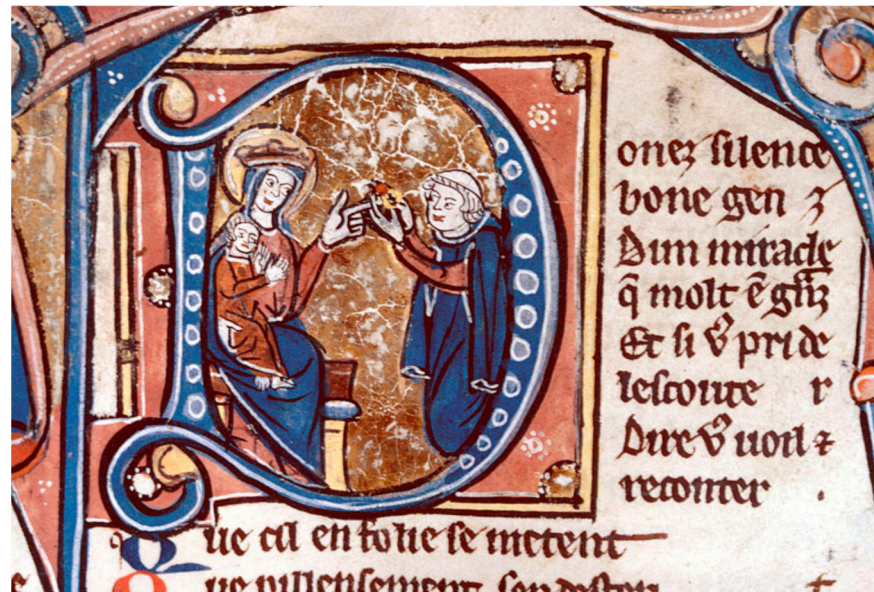 D
onez silence
bone gen z
Dun miracle
q̄ molt ē gñz
Et si ꝟ pri de
lescoute r
Dire ꝟ uoil ⁊
reconter .
Que cil en folie se metent